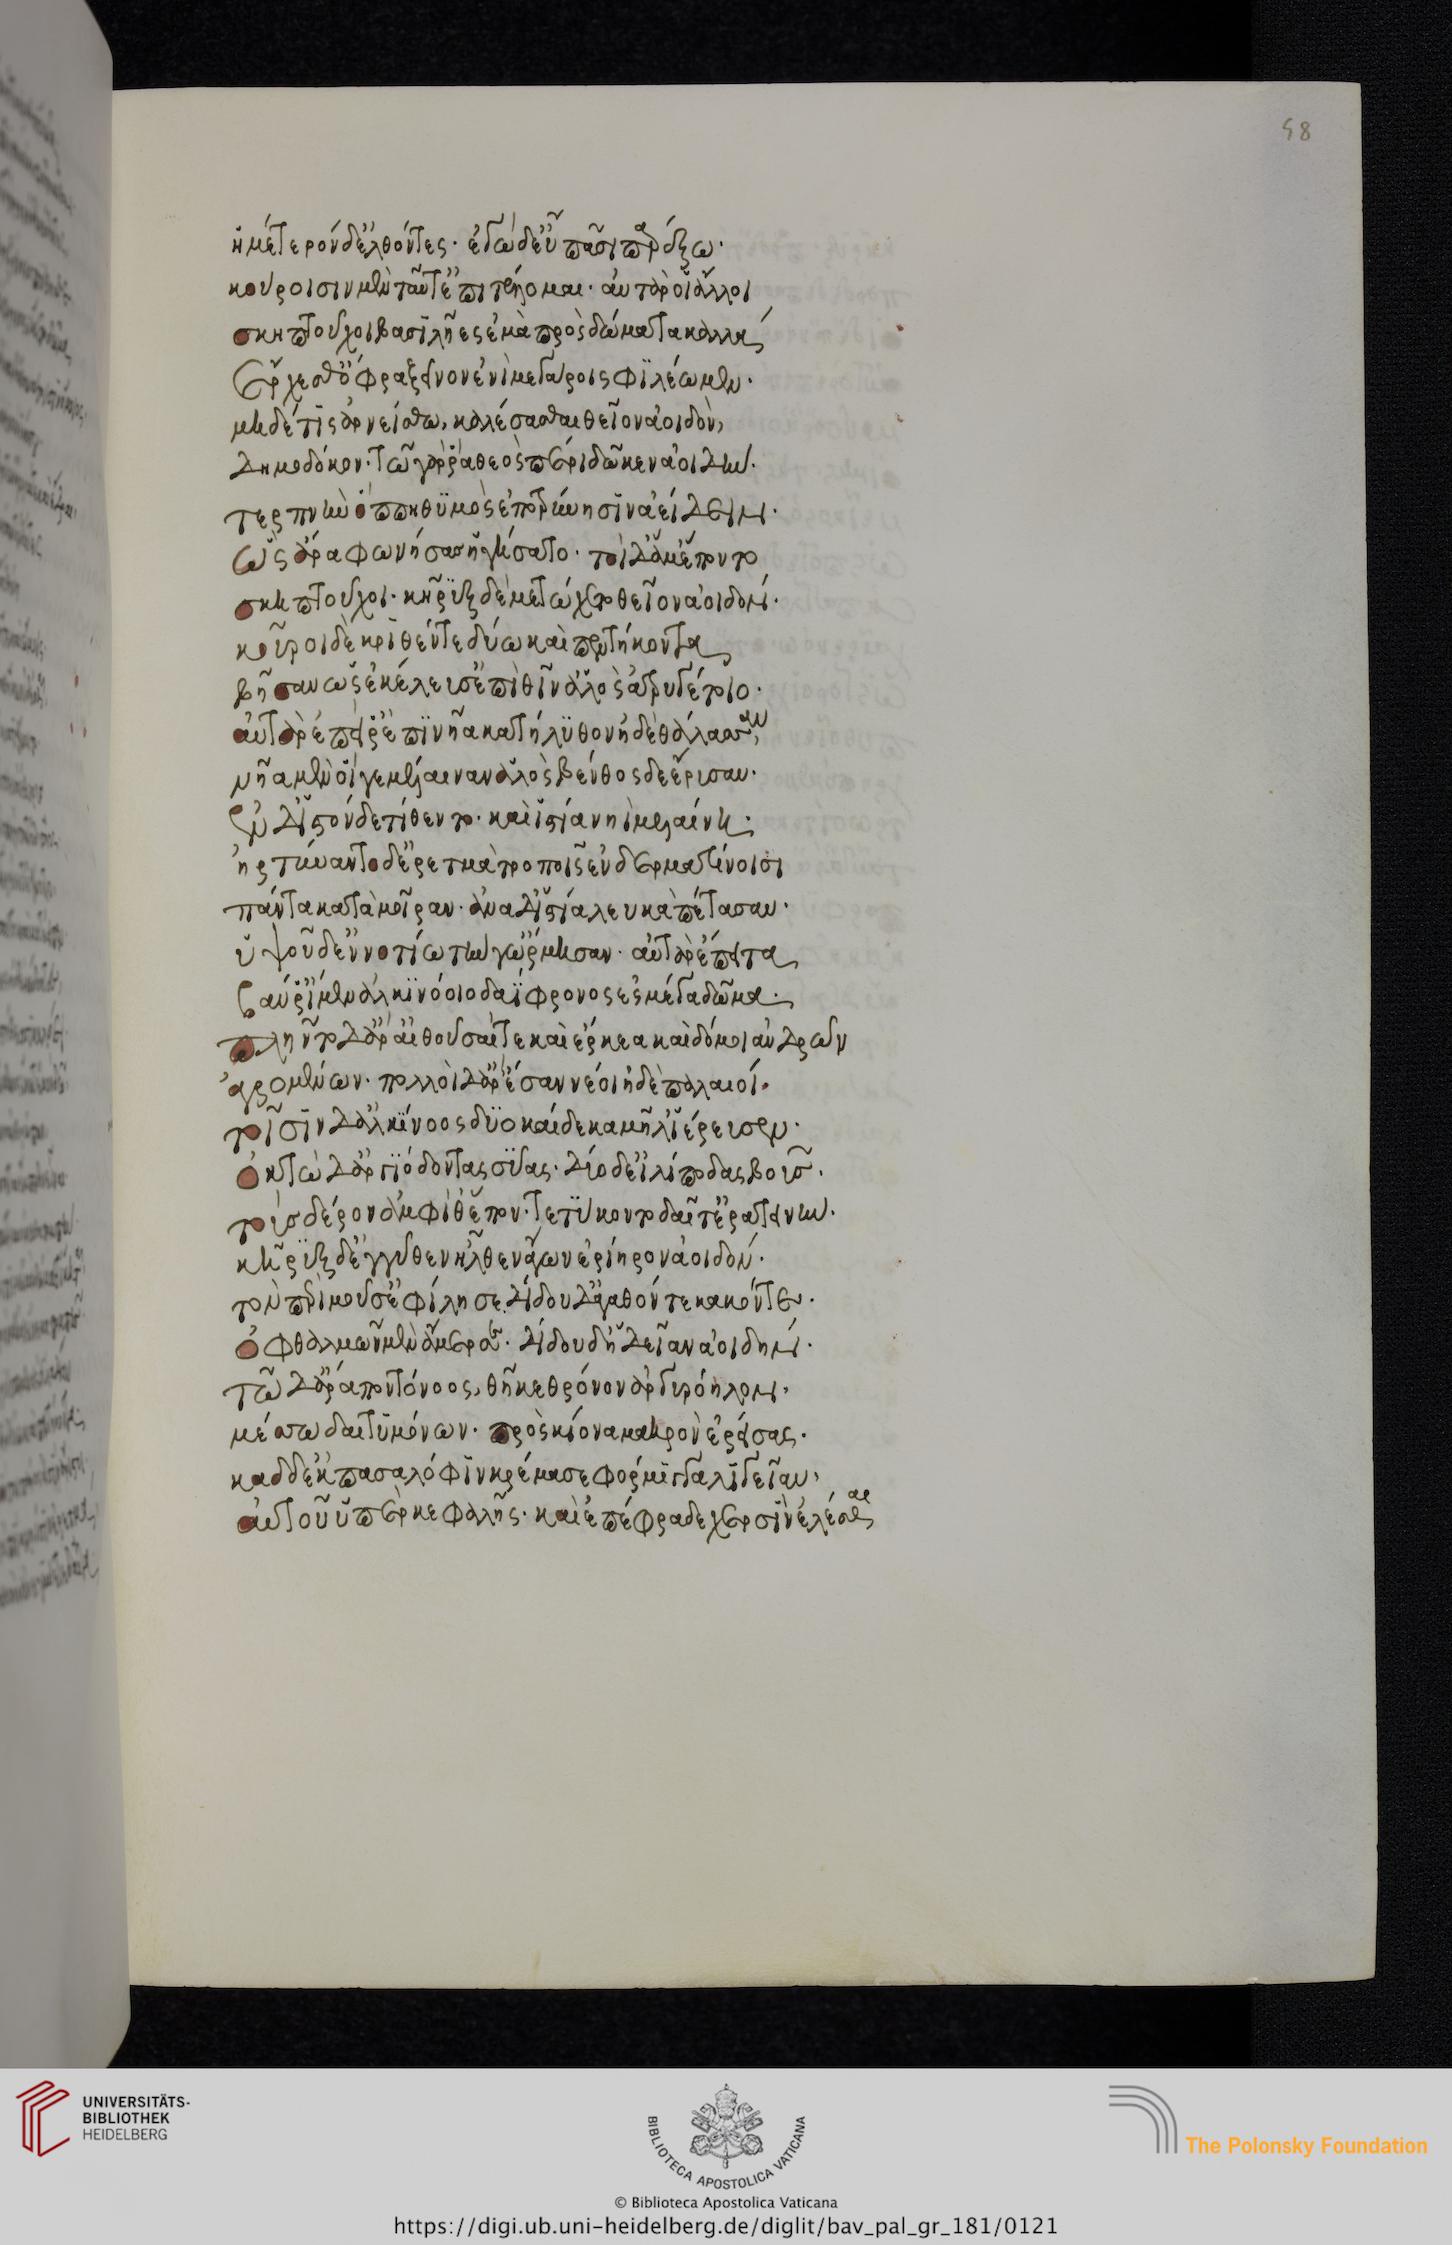 58
ἡμέτερόνδ' ἐλθόντες· ἐγὼ δ' εὖ πᾶσι παρέξω·
κούροισιν μὲν ταῦτ' ἐπιτέλλομαι· αὐτὰρ οἱ ἄλλοι
σκηπτοῦχοι βασιλῆες ἐμὰ πρὸς δώματα καλλὰ
ἔρχεσθ' ὄφρα ξεῖνον ἐνὶ μεγάροις φιλέωμεν·
μηδέ τις ἀρνείσθω, καλέσασθαι θεῖον ἀοιδὸν,
δημοδόκον· τῶ γὰρ ῥὰ θεὸς περὶ δῶκεν ἀοιδήν·
τερπνὴν ὅππη θυμὸς ἐποτρύνησιν ἀείδειν·
ὣς ἄρα φωνήσας ἡγήσατο· τοὶ δ' ἅμ' ἕποντο
σκηπτοῦχοι· κήρυξ δὲ μετώχετο θεῖον ἀοιδόν·
κοῦροι δὲ κριθέντε δύω καὶ πεντήκοντα
βῆσαν ὡς ἐκέλευσ' ἐπὶ θῖν' ἁλὸς ἀτρυγέτοιο·
αὐτὰρ ἐπεί ῥ' ἐπὶ νῆα κατήλυθον ἠδὲ θάλασσαν,
νῆα μὲν οἵγε μέλαιναν ἁλὸς βένθοςδε ἔρυσαν·
ἐν δ' ἱστόν δ' ἐτίθεντο· καὶ ἱστία νηῒ μελαίνη·
ἠρτύναντο δ' ἐρετμὰ τροποῖς ἐν δερματίνοισι
πάντα κατὰ μοῖραν· ἀνα δ' ἱστία λευκὰ πέτασαν·
ὑψοῦ δ' ἐν νοτίω τήν γ' ὥρμησαν· αὐτὰρ ἔπειτα
βάν ῥ' ἴμεν ἀλκινόοιο δαΐφρονος ἐς μέγα δῶμα·
πλῆντο δ' ἄρ' αἴθουσαί τε καὶ ἕρκεα καὶ δόμοι ἀνδρῶν
ἀγρομένων· πολλοὶ δ' ἄρ' ἔσαν νέοι ἠδὲ παλαιοί·
τοῖσιν δ' ἀλκίνοος δυοκαίδεκα μῆλ' ἱέρευσεν·
ὀκτὼ δ' ἀργιόδοντας σύας· δύο δ' εἰλίποδας βοῦς·
τοὺς δέρον ἀμφὶ θ' ἕπον· τετύκοντο δαῖτ' ἐρατεινήν·
κῆρυξ δ' ἐγγύθεν ἦλθεν ἄγων ἐρίηρον ἀοιδόν·
τὸν πέρι μοῦσ' ἐφίλησε, δίδου δ' ἀγαθόν τε κακόν τε·
ὀφθαλμῶν μὲν ἄμερσε· δίδου δ' ἡδεῖαν ἀοιδήν·
τῶ δ' ἄρα ποντόνοος, θῆκε θρόνον ἀργυρόηλον,
μέσσω δαιτυμόνων· πρὸς κίονα μακρὸν ἐρείσας·
καδδ' ἐκ πασσαλόφιν κρέμασε φόρμιγγα λίγειαν,
αὐτοῦ ὑπὲρ κεφαλῆς· καὶ ἐπέφραδε χερσὶν ἑλέσθαι
UNIVERSITÄTS-
BIBLIOTHEK
HEIDELBERG
BIBLIOTECA APOSTOLICA VATICANA
The Polonsky Foundation
© Biblioteca Apostolica Vaticana
https://digi.ub.uni-heidelberg.de/diglit/bav_pal_gr_181/0121